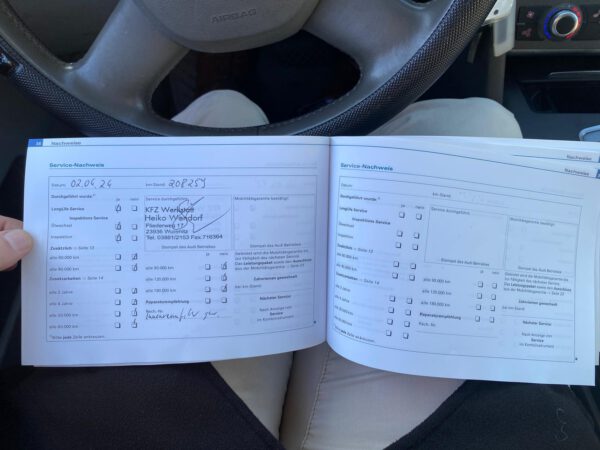 AIRBAG
38 Nachweise
Service-Nachweis
Datum: 02.04.24 km-Stand: 208259
Durchgeführt wurde:
ja nein
LongLife Service
Inspektions Service
Ölwechsel
Inspektion
Service durchgeführt:
KFZ Werkstatt
Heiko Wehdorf
23936
Tel. 03881/2153 Fax:716364
Stempel des Audi Betriebes
Mobilitätsgarantie bestätigt:
Stempel des Audi Betriebes
Zusätzlich ⇒ Seite 13
alle 60.000 km
alle 90.000 km
Zusatzarbeiten ⇒ Seite 14
alle 2 Jahre
alle 4 Jahre
alle 30.000 km
alle 60.000 km
ja nein
alle 90.000 km
alle 120.000 km
alle 180.000 km
Reparaturempfehlung
Rech.-Nr.
Nächster Service
Nach Anzeige der
Service
im Kombiinstrument
Bitte jede Zeile ankreuzen.
Nachweise
Service-Nachweis
Datum: km-Stand:
Durchgeführt wurde:
ja nein
LongLife Service
Inspektions Service
Ölwechsel
Inspektion
Service durchgeführt:
Stempel des Audi Betriebes
Mobilitätsgarantie bestätigt:
Stempel des Audi Betriebes
Zusätzlich ⇒ Seite 13
alle 60.000 km
alle 90.000 km
Zusatzarbeiten ⇒ Seite 14
alle 2 Jahre
alle 4 Jahre
alle 30.000 km
alle 60.000 km
ja nein
alle 90.000 km
alle 120.000 km
alle 180.000 km
Reparaturempfehlung
Rech.-Nr.
Nächster Service
Nach Anzeige der
Service
im Kombiinstrument
Bitte jede Zeile ankreuzen.